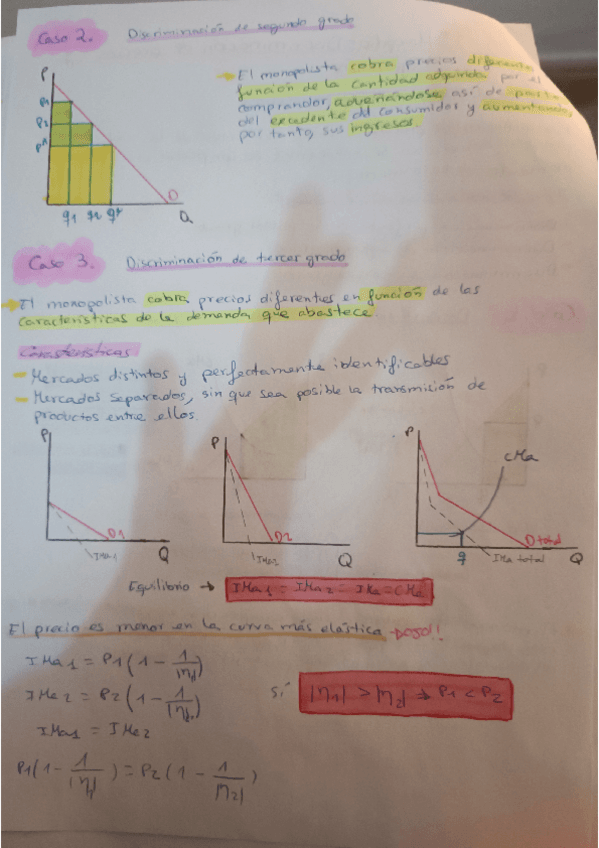 Caso 2. Discriminación de segundo grado
P
P1
P2
P*
q1 q2 q*
D
Q
El monopolista cobra precios diferentes
función de la cantidad adquirida por el
comprador, adueñándose así de parte
del excedente del consumidor y aumentando,
por tanto, sus ingresos.
Caso 3. Discriminación de tercer grado
El monopolista cobra precios diferentes en función de las
características de la demanda que abastece.
Características
Mercados distintos y perfectamente identificables
Mercados separados, sin que sea posible la transmisión de
productos entre ellos.
P
D1
IMa1
Q
P
D2
IMa2
Q
P
CMa
D total
q
IMa total
Q
Equilibrio → IMa1 = IMa2 = IMa = CMa
El precio es menor en la curva más elástica - DOSO!!
IMa1 = P1(1 - 1/|η1|)
IMa2 = P2(1 - 1/|η2|)
Si |η1| > |η2| ⇒ P1 < P2
IMa1 = IMa2
P1(1 - 1/|η1|) = P2(1 - 1/|η2|)